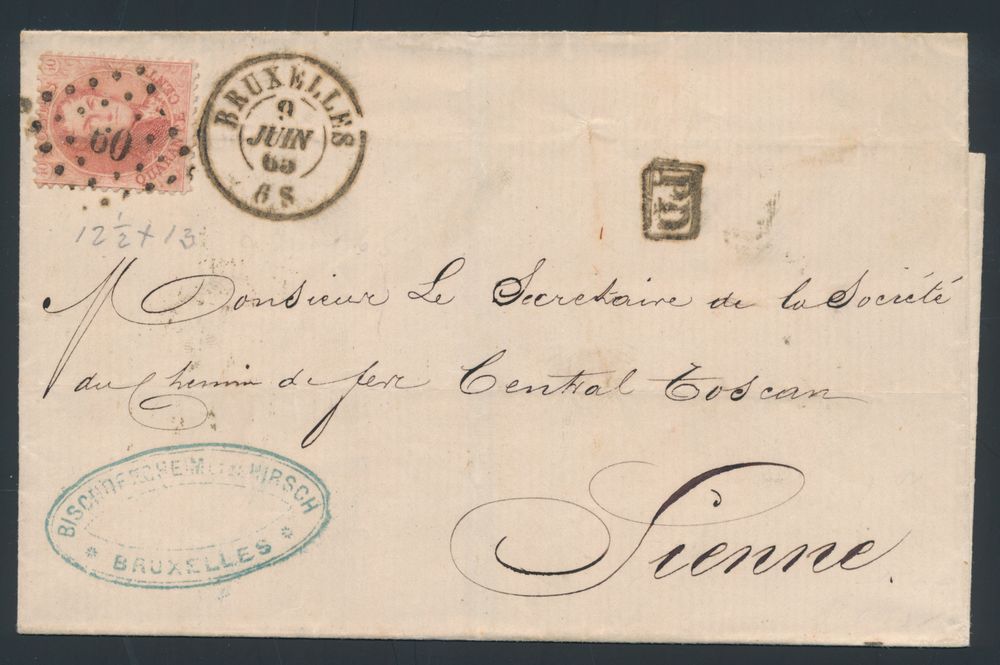 QUARANTE CENT
60
BRUXELLES
9
JUIN
65
6 S
PD
12 ½ + 13
Monsieur Le Secretaire de la Société
du Chemin de fere Central Toscan
Sienne
BISCHOFFSHEIM HIRSCH
* BRUXELLES *